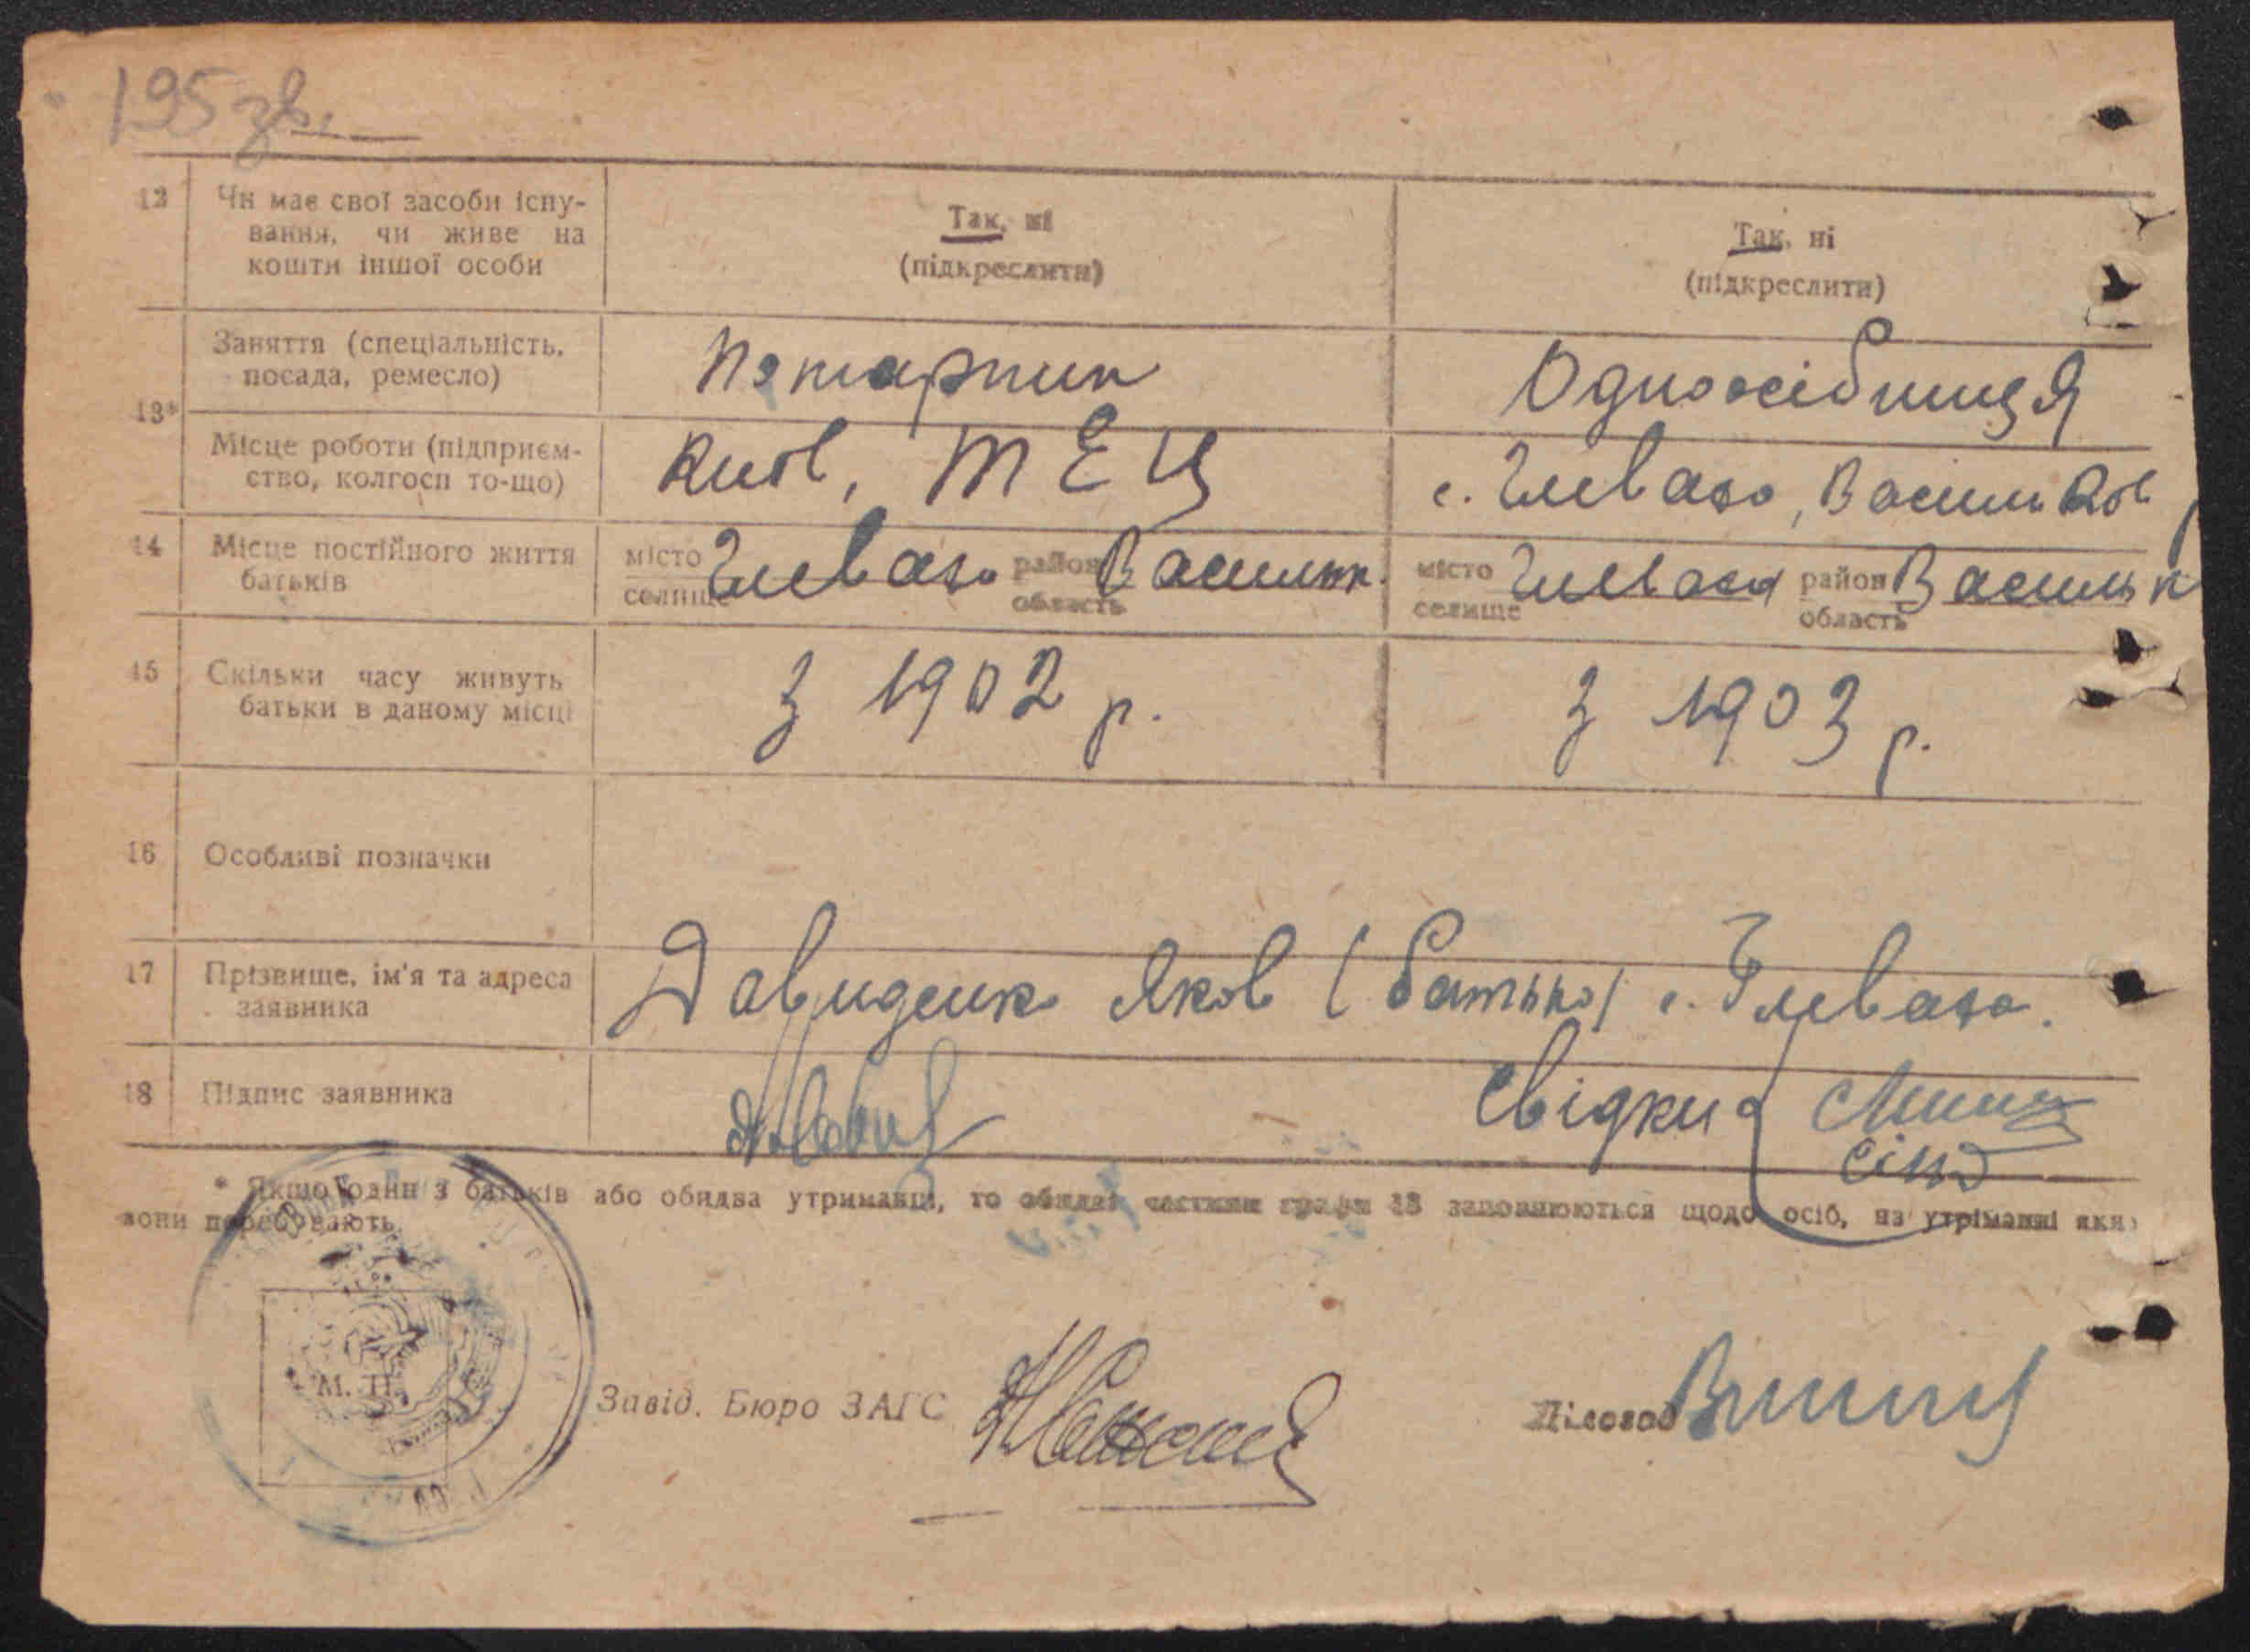 195 зв.
12 Чи має свої засоби існу-
вання, чи живе на
кошти іншої особи
Так, ні
(підкреслити)
Так, ні
(підкреслити)
13*
Заняття (спеціальність,
посада, ремесло)
Пожарник
Одноосібниця
Місце роботи (підприєм-
ство, колгосп то-що)
Київ, ТЕЦ
с. Глеваха, Васильков
14 Місце постійного життя
батьків
місто
селище
Глеваха
район
область
Васильк.
місто
селище
Глеваха
район
область
Васильк
15 Скільки часу живуть
батьки в даному місці
З 1902 р.
З 1903 р.
16 Особливі позначки
17 Прізвище, ім'я та адреса
заявника
Давиденко Яков (батько) с. Глеваха.
18 Підпис заявника
Свідки
* Якщо один з батьків або обидва утриманці, то обидві частини графи 13 заповнюються щодо осіб, на утріманні яких
вони перебувають.
М. П.
Завід. Бюро ЗАГС
Діловод